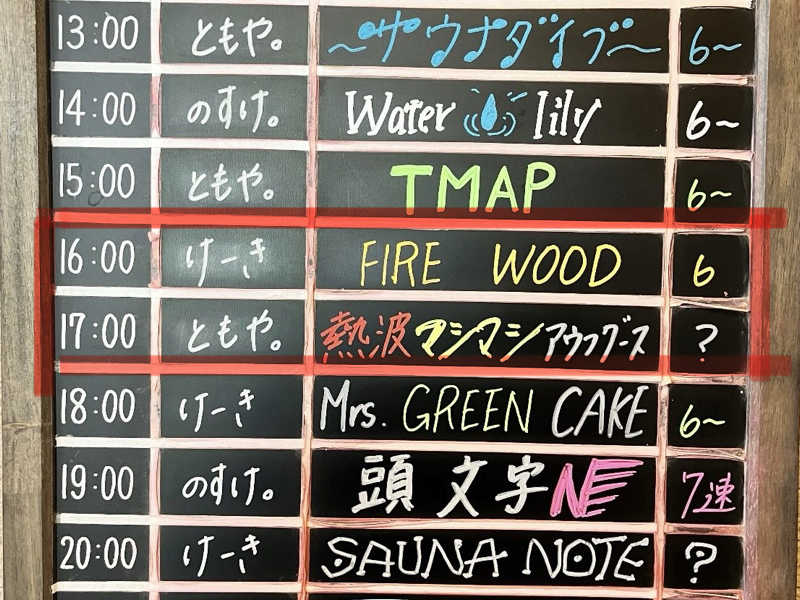 13:00 ともや。 〜サウナダイブ〜 6〜
14:00 のすけ。 Water lily 6〜
15:00 ともや。 TMAP 6〜
16:00 けーき FIRE WOOD 6
17:00 ともや。 熱波マシマシアウフグース ?
18:00 けーき Mrs. GREEN CAKE 6〜
19:00 のすけ。 頭文字NE 7速
20:00 けーき SAUNA NOTE ?